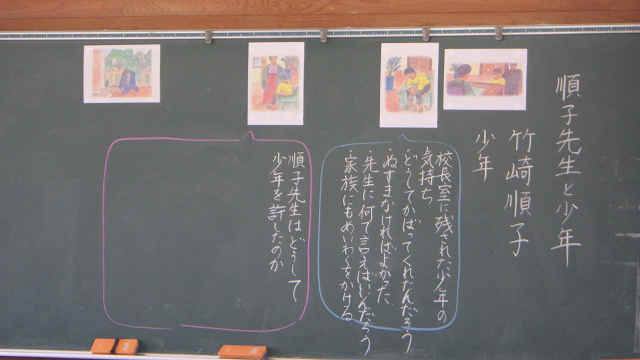 順子先生と少年
竹崎順子
少年
校長室に残された少年の
気持ち
どうしてかばってくれたんだろう
ぬすまなければよかった
先生に何て言えばいいんだろう
家族にもめいわくをかける
順子先生はどうして
少年を許したのか